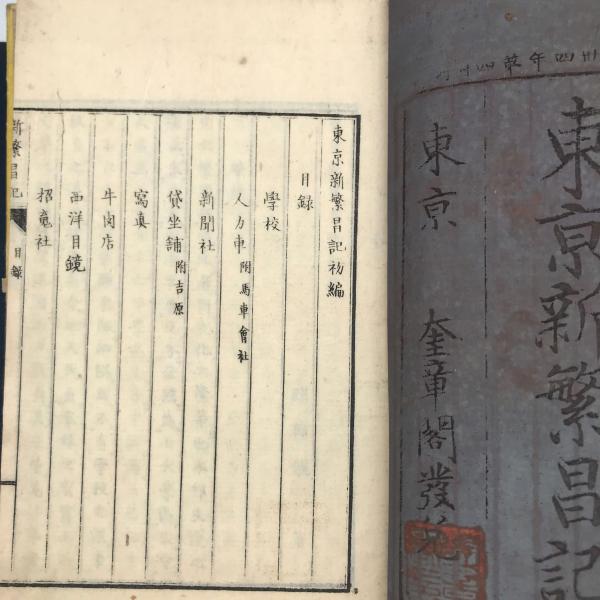 東京新繁昌記
東京 奎章閣發兌
東京新繁昌記初編
目録
學校
人力車 附馬車會社
新聞社
貸坐舗 附吉原
寫真
牛肉店
西洋目鏡
招魂社
新繁昌記 目録